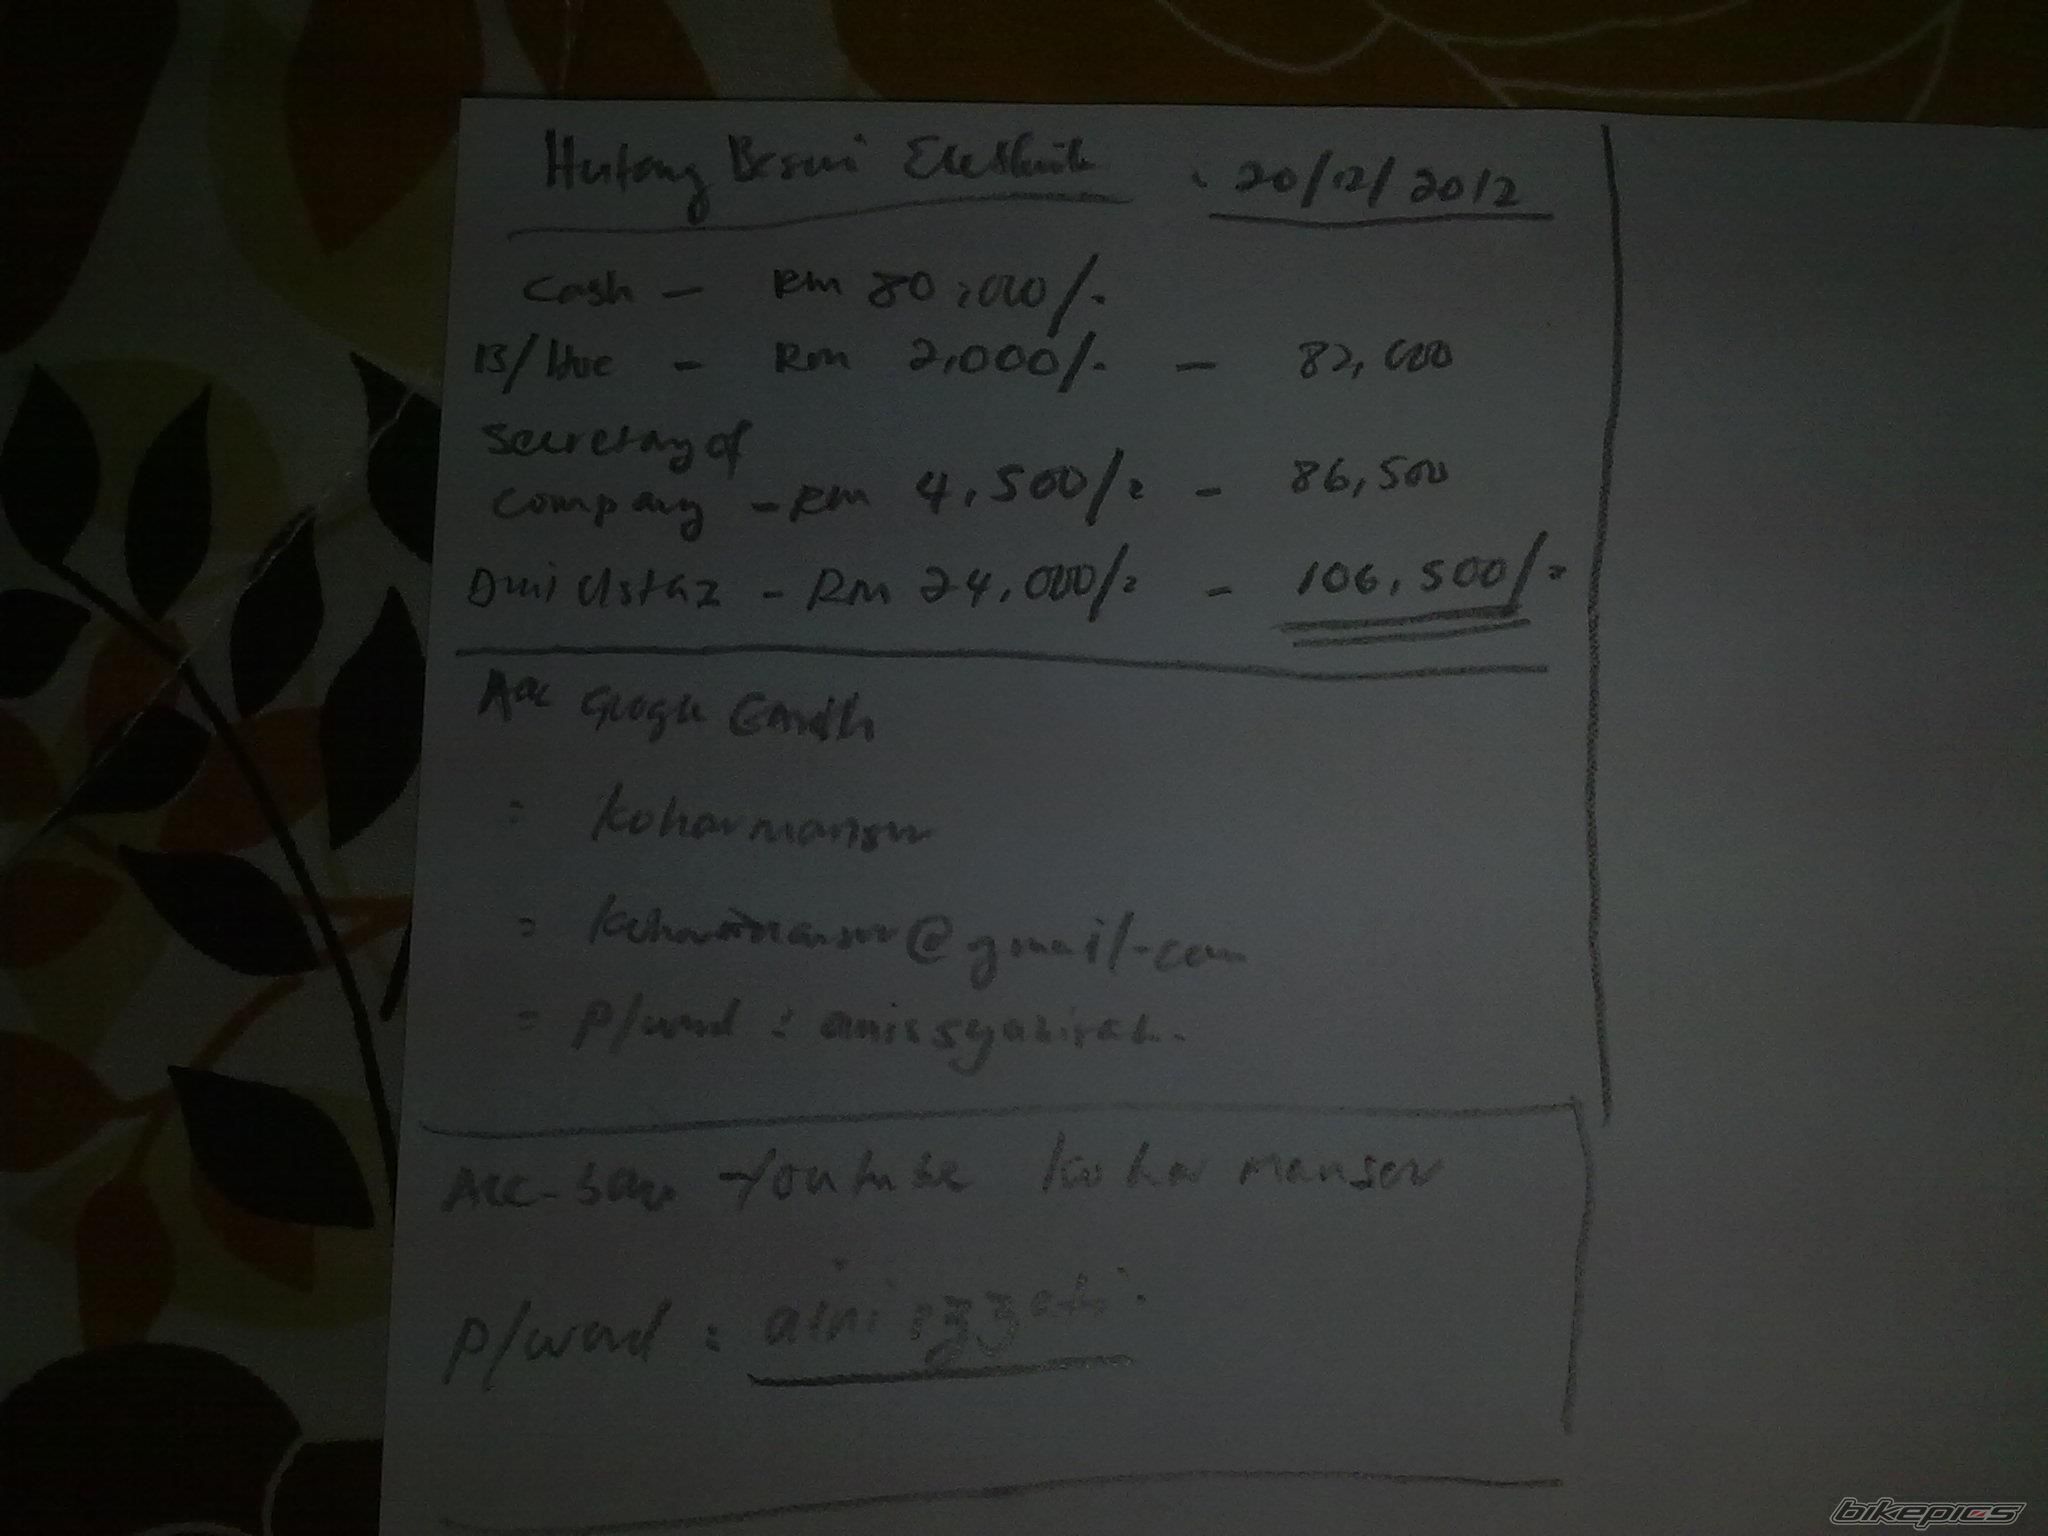 Hutang Besui Elektrik . 20/12/2012
Cash – RM 80,000/-
B/Hoe – RM 2,000/- – 82,000
Secretary of
company – RM 4,500/= – 86,500
Duit Ustaz – RM 24,000/= – 106,500/=
Acc Google Earth
= koharmansur
= koharmansur@gmail.com
= p/word : anissyazirah.
Acc-baru Youtube kohar mansur
p/word : aini izzati.
bikepics